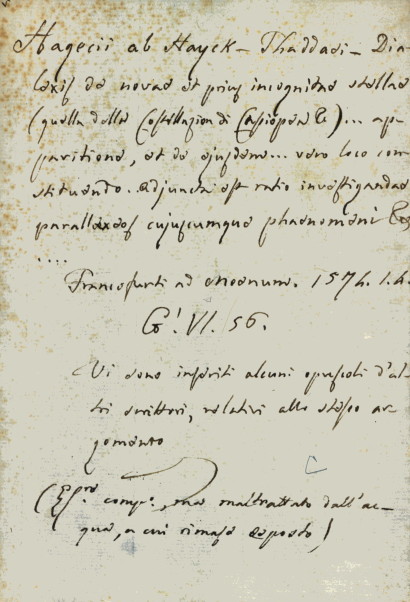 Hagecii ab Hayck - Thaddaei - Dia-
lexis de novae et prius incognitae stellae
(quella della Costellazion di Cassiopea &)... ap-
paritione, et de ejusdem... vero loco con-
stituendo. Adjuncta est ratio investigandae
parallaxeos cujuscumque phaenomeni &c
....
Francofurti ad Moenum. 1574. I. 4.
G! VI. 56.
Vi sono inseriti alcuni opuscoli d'al-
tri scrittori, relativi allo stesso ar-
gomento
(Esre compo, ma maltrattato dall'ac-
qua, a cui rimase esposto)